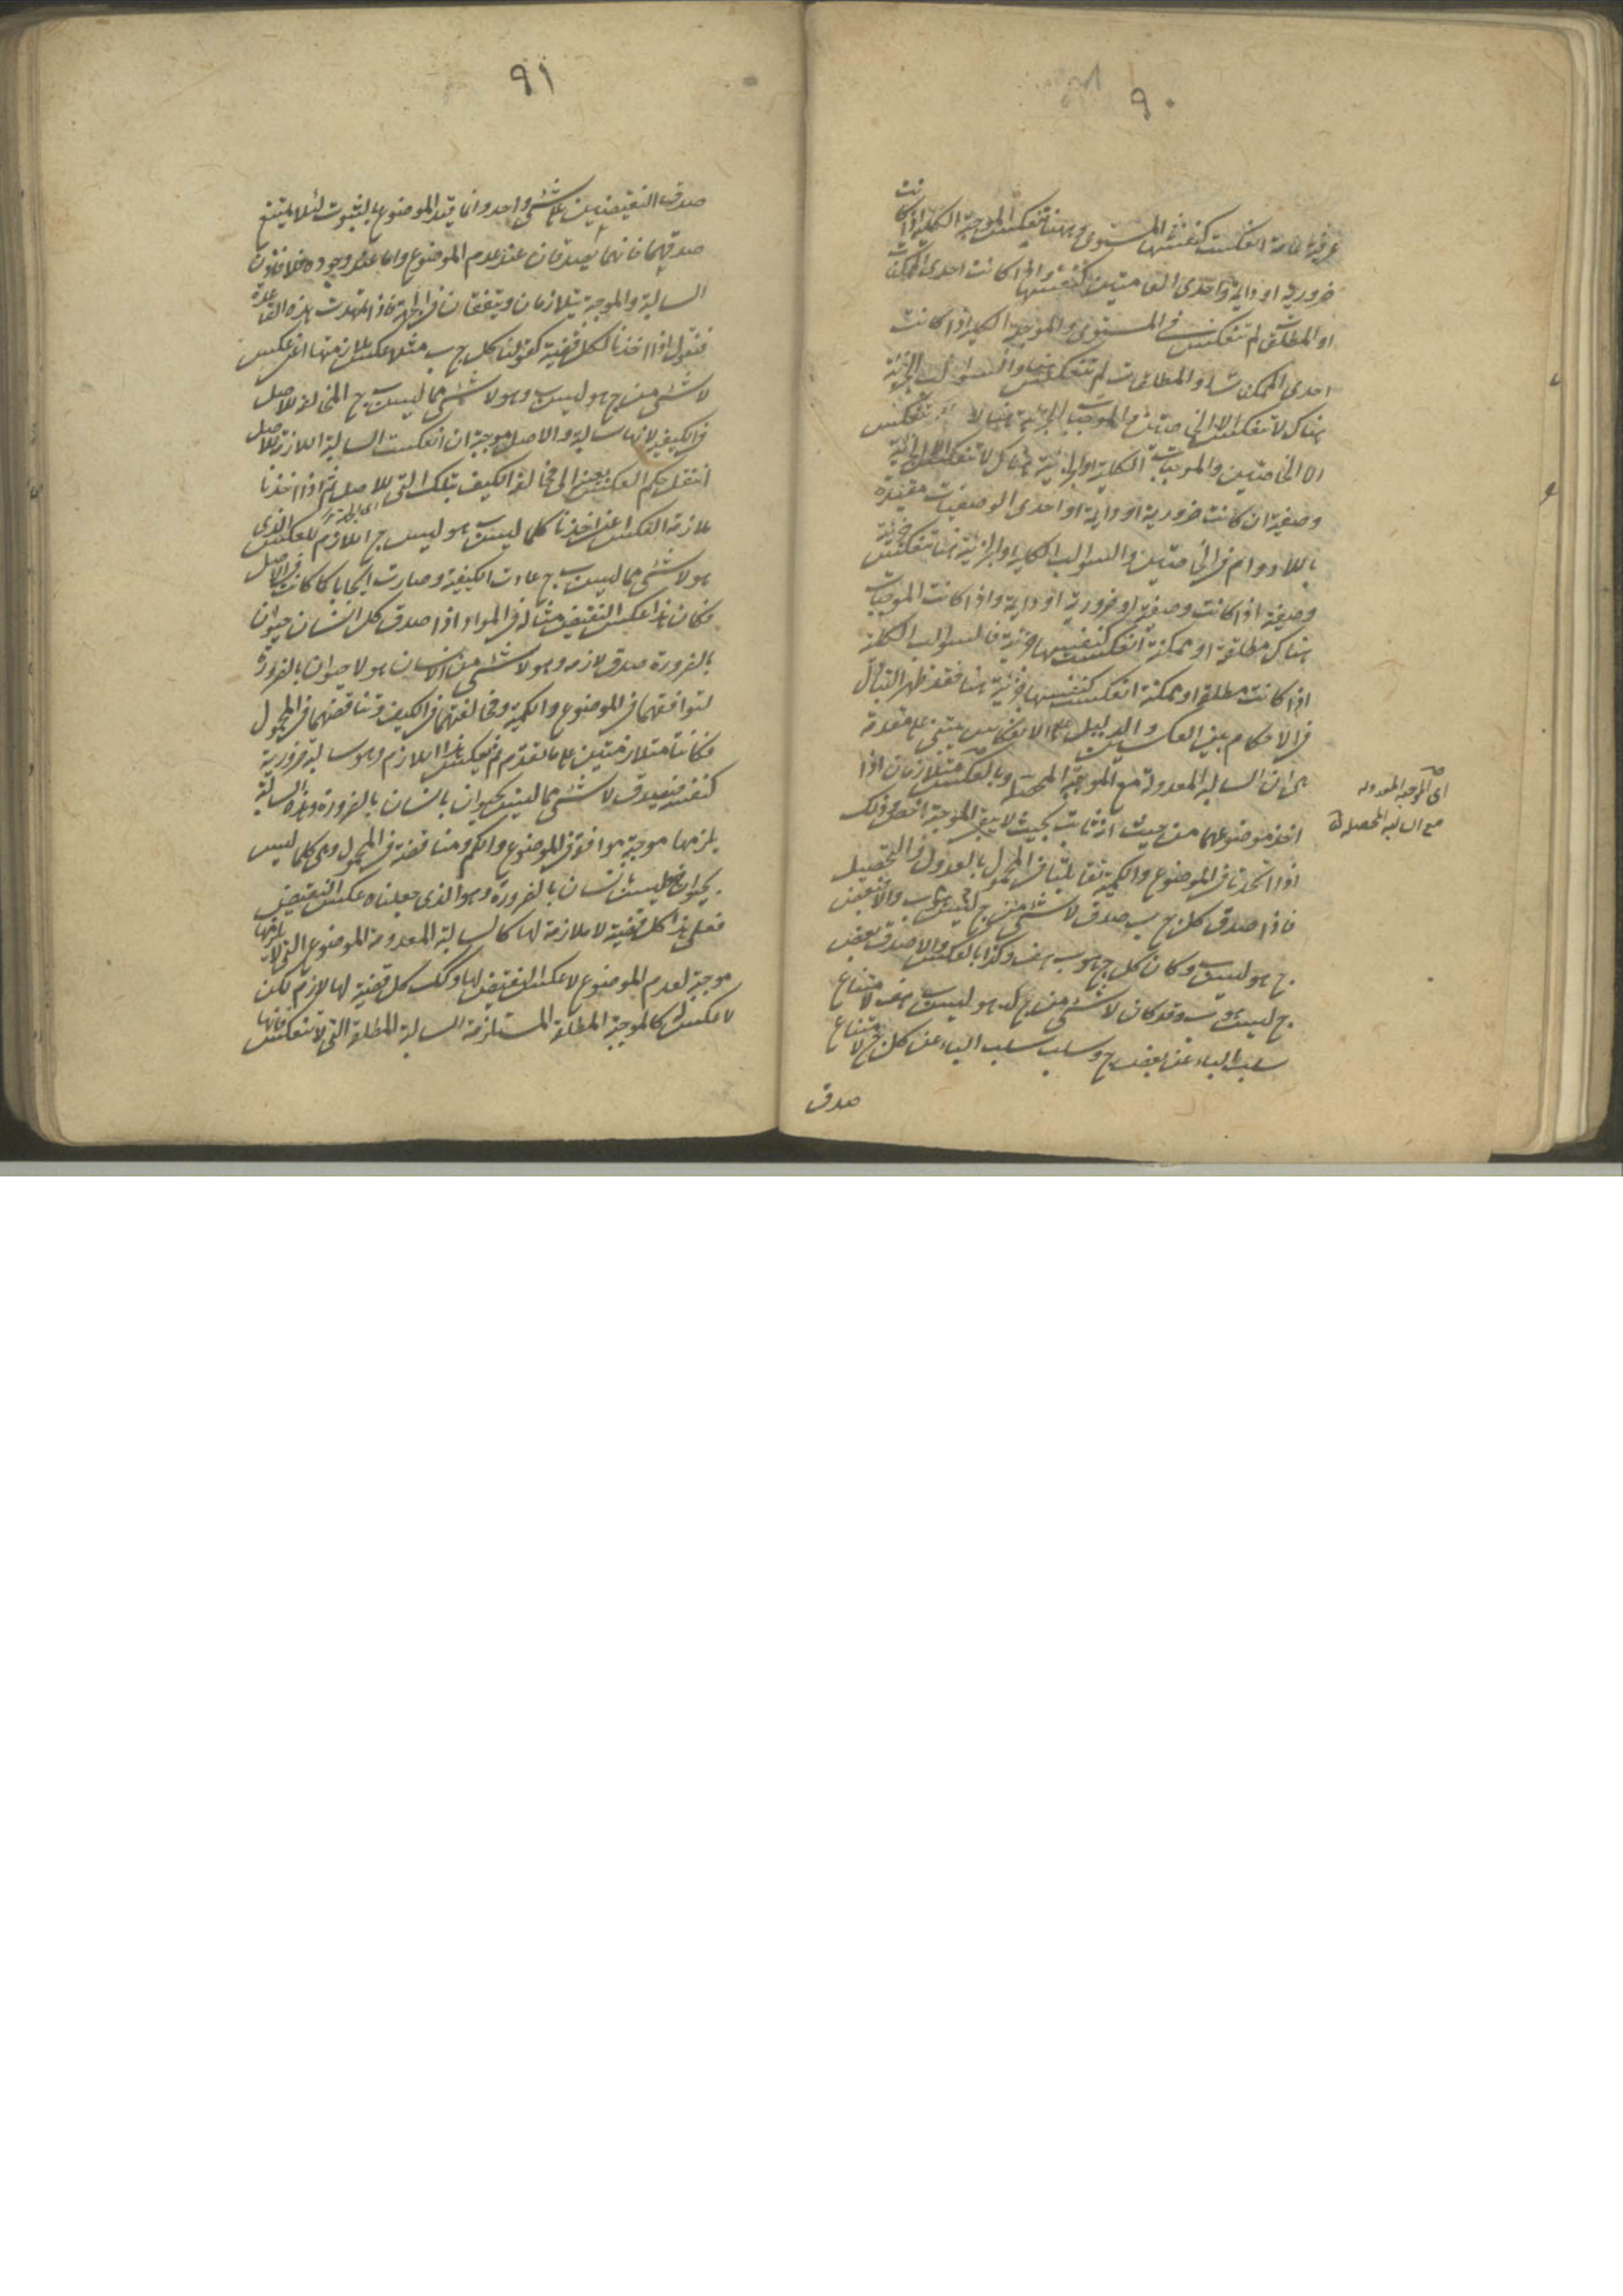 ٩٠
عرفية عامة انعكست كنفسها في المستوى وههنا تنعكس الموجبة الكلية اذا كانت
ضرورية او دائمة او احدى العامتين كنفسها واذا كانت احدى الممكنات
او المطلقات لم تنعكس في المستوى والموجبة الكلية اذا كانت
احدى الممكنات او المطلقات لم تنعكس هنا والسوالب الجزئية
هناك لا تنعكس الا الخاصتين والموجبات الجزئية هنا لا تنعكس
الا الخاصتين والموجبات الكلية او الجزئية هناك لا تنعكس الا جزئية
وصفية ان كانت ضرورية او دائمة او احدى الوصفيات مقيدة
باللادوام في الخاصتين والسوالب الكلية او الجزئية هنا تنعكس جزئية
وصفية اذا كانت وصفية او ضرورية او دائمة واذا كانت الموجبات
هناك مطلقة او ممكنة انعكست كنفسها جزئية فالسوالب الكلية
اذا كانت مطلقة او ممكنة انعكست كنفسها جزئية هنا فقد ظهر التبادل
في الاحكام بين العكسين والدليل على الانعكاس يبتنى على مقدمة
هي ان السالبة المعدولة مع الموجبة المحصلة وبالعكس متلازمان اذا
اخذ موضوعهما من حيث انه ثابت بحيث لا يبقى الموجبة اخص وذلك
اذا اتحدتا في الموضوع والكمية تقابلتا في المحمول بالعدول والتحصيل
فاذا صدق كل ج ب صدق لا شئ من ج ليس ب والا فبعض
ج هو ليس ب وكان كل ج هو ب هف وكذا بالعكس والا صدق بعض
ج ليس هو ب وقد كان لا شئ من ج هو ليس ب هف لامتناع
سلب الباء عن بعض ج وسلب سلب الباء عن كل ج لامتناع
صدق
اى الموجبة المعدولة
مع السالبة المحصلة
٩١
صدق النقيضين على شئ واحد وانما قيد الموضوع بالثبوت لئلا يمتنع
صدقهما فانهما يصدقان عند عدم الموضوع واما عند وجوده فلا فاذن
السالبة والموجبة يتلازمان ويتفقان في الجهة فاذا تمهدت هذه القاعدة
فنقول اذا اخذنا لكل قضية كقولنا كل ج ب مثلا عكس ملازمتها اعنى عكس
لا شئ من ج هو ليس ب وهو لا شئ مما ليس ب ج المخالفة للاصل
في الكيفية لانها سالبة والاصل موجبة ان انعكست السالبة اللازمة للاصل
انتقل حكم العكس يعنى الى مخالفة الكيف بتلك التى للاصل ثم اذا اخذنا
ملازمة العكس اعنى اخذنا كلما ليس ب هو ليس ج اللازم للعكس الذى
هو لا شئ مما ليس ب ج عادت الكيفية وصارت ايجابا كما كانت في الاصل
فكان هذا عكس النقيض مثاله في المواد اذا صدق كل انسان حيوان
بالضرورة صدق لازمه وهو لا شئ من الانسان هو لا حيوان بالضرورة
لتوافقهما في الموضوع والكمية ومخالفتهما في الكيف وتناقضهما في المحمول
فكانتا متلازمتين على ما تقدم ثم ينعكس هذا اللازم وهو سالبة ضرورية
كنفسه فيصدق لا شئ مما ليس بحيوان بانسان بالضرورة وهذه السالبة
يلزمها موجبة موافقة في الموضوع والكم ومناقضة في المحمول وهى كلما ليس
بحيوان فليس بانسان بالضرورة وهو الذى جعلناه عكس النقيض
فعلى هذا كل قضية لا ملازمة لها كالسالبة المعدومة الموضوع التى لا يلزمها
موجبة لعدم الموضوع لا عكس النقيض لها وكذلك كل قضية لها لازم لكن
لا عكس له كالموجبة المطلقة المستلزمة السالبة المطلقة التى لا تنعكس فانها